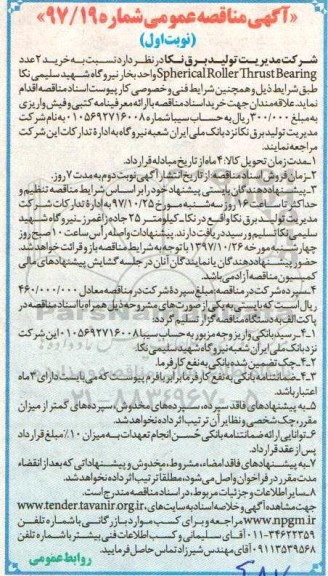 «آگهی مناقصه عمومی شماره ۹۷/۱۹»
(نوبت اول)
شرکت مدیریت تولید برق نکا در نظر دارد نسبت به خرید ۲ عدد
Spherical Roller Thrust Bearing واحد بخار نیروگاه شهید سلیمی نکا
طبق شرایط ذیل و همچنین شرایط فنی و خصوصی کار پیوست اسناد مناقصه اقدام
نماید. علاقه مندان جهت خرید اسناد مناقصه با ارائه معرفینامه کتبی و فیش واریزی
به مبلغ ۳۰۰/۰۰۰ ریال به حساب سیبا شماره ۰۱۰۵۶۹۲۷۱۶۰۰۸ به نام شرکت
مدیریت تولید برق نکا نزد بانک ملی ایران شعبه نیروگاه به اداره تدارکات این شرکت
مراجعه نمایند.
۱ـ مدت زمان تحویل کالا: ۴ ماه از تاریخ مبادله قرارداد.
۲ـ زمان فروش اسناد مناقصه: از تاریخ انتشار آگهی نوبت دوم به مدت ۷ روز.
۳ـ پیشنهاددهندگان بایستی پیشنهاد خود را بر اساس شرایط مناقصه تنظیم و
حداکثر تا ساعت ۱۶ روز سه شنبه مورخ ۹۷/۱۰/۲۵ به اداره تدارکات شرکت
مدیریت تولید برق نکا واقع در نکا ـ کیلومتر ۲۵ جاده زاغمرز ـ نیروگاه شهید
سلیمی نکا تسلیم و رسید دریافت دارند. پیشنهادات واصله رأس ساعت ۱۰ صبح روز
چهارشنبه مورخه ۱۳۹۷/۱۰/۲۶ با توجه به شرایط مناقصه باز و قرائت خواهد شد.
حضور پیشنهاددهندگان یا نمایندگان آنان در جلسه گشایش پیشنهادهای مالی
کمیسیون مناقصه آزاد می باشد.
۴ـ سپرده شرکت در مناقصه: مبلغ سپرده شرکت در مناقصه معادل ۴۶۰/۰۰۰/۰۰۰
ریال است که بایستی به یکی از صورت های مشروحه ذیل همراه با اسناد مناقصه در
پاکت الف به دستگاه مناقصه گزار تسلیم گردد:
۴ـ۱ـ رسید بانکی واریز وجه مزبور به حساب سیبا ۰۱۰۵۶۹۲۷۱۶۰۰۸ این شرکت
نزد بانک ملی ایران شعبه نیروگاه شهید سلیمی نکا.
۴ـ۲ـ چک تضمین شده بانکی به نفع کارفرما.
۴ـ۳ـ ضمانتنامه بانکی به نفع کارفرما برابر با فرم پیوست که می بایست دارای ۴ ماه
اعتبار باشد.
۵ـ به پیشنهادهای فاقد سپرده، سپرده های مخدوش، سپرده های کمتر از میزان
مقرر، چک شخصی و نظایر آن ترتیب اثر داده نخواهد شد.
۶ـ توانایی ارائه ضمانتنامه بانکی حسن انجام تعهدات به میزان ۱۰٪ مبلغ قرارداد
پس از عقد قرارداد.
۷ـ به پیشنهادهای فاقد امضاء، مشروط، مخدوش و پیشنهاداتی که بعد از انقضاء
مدت مقرر در فراخوان واصل می شود، مطلقاً ترتیب اثر داده نخواهد شد.
۸ـ سایر اطلاعات و جزئیات مربوط، در اسناد مناقصه مندرج است.
جهت مشاهده آگهی و خلاصه اسناد به سایت های www.tender.tavanir.org.ir,
www.npgm.ir مراجعه و برای کسب موارد بازرگانی با شماره تلفن
۰۱۱-۳۴۶۲۲۳۵۹ آقای سلیمانی و کسب اطلاعات فنی بیشتر با شماره تلفن
۰۹۱۱۳۵۳۹۵۶۸ آقای مهندس شیرزاد تماس حاصل فرمایید.
روابط عمومی